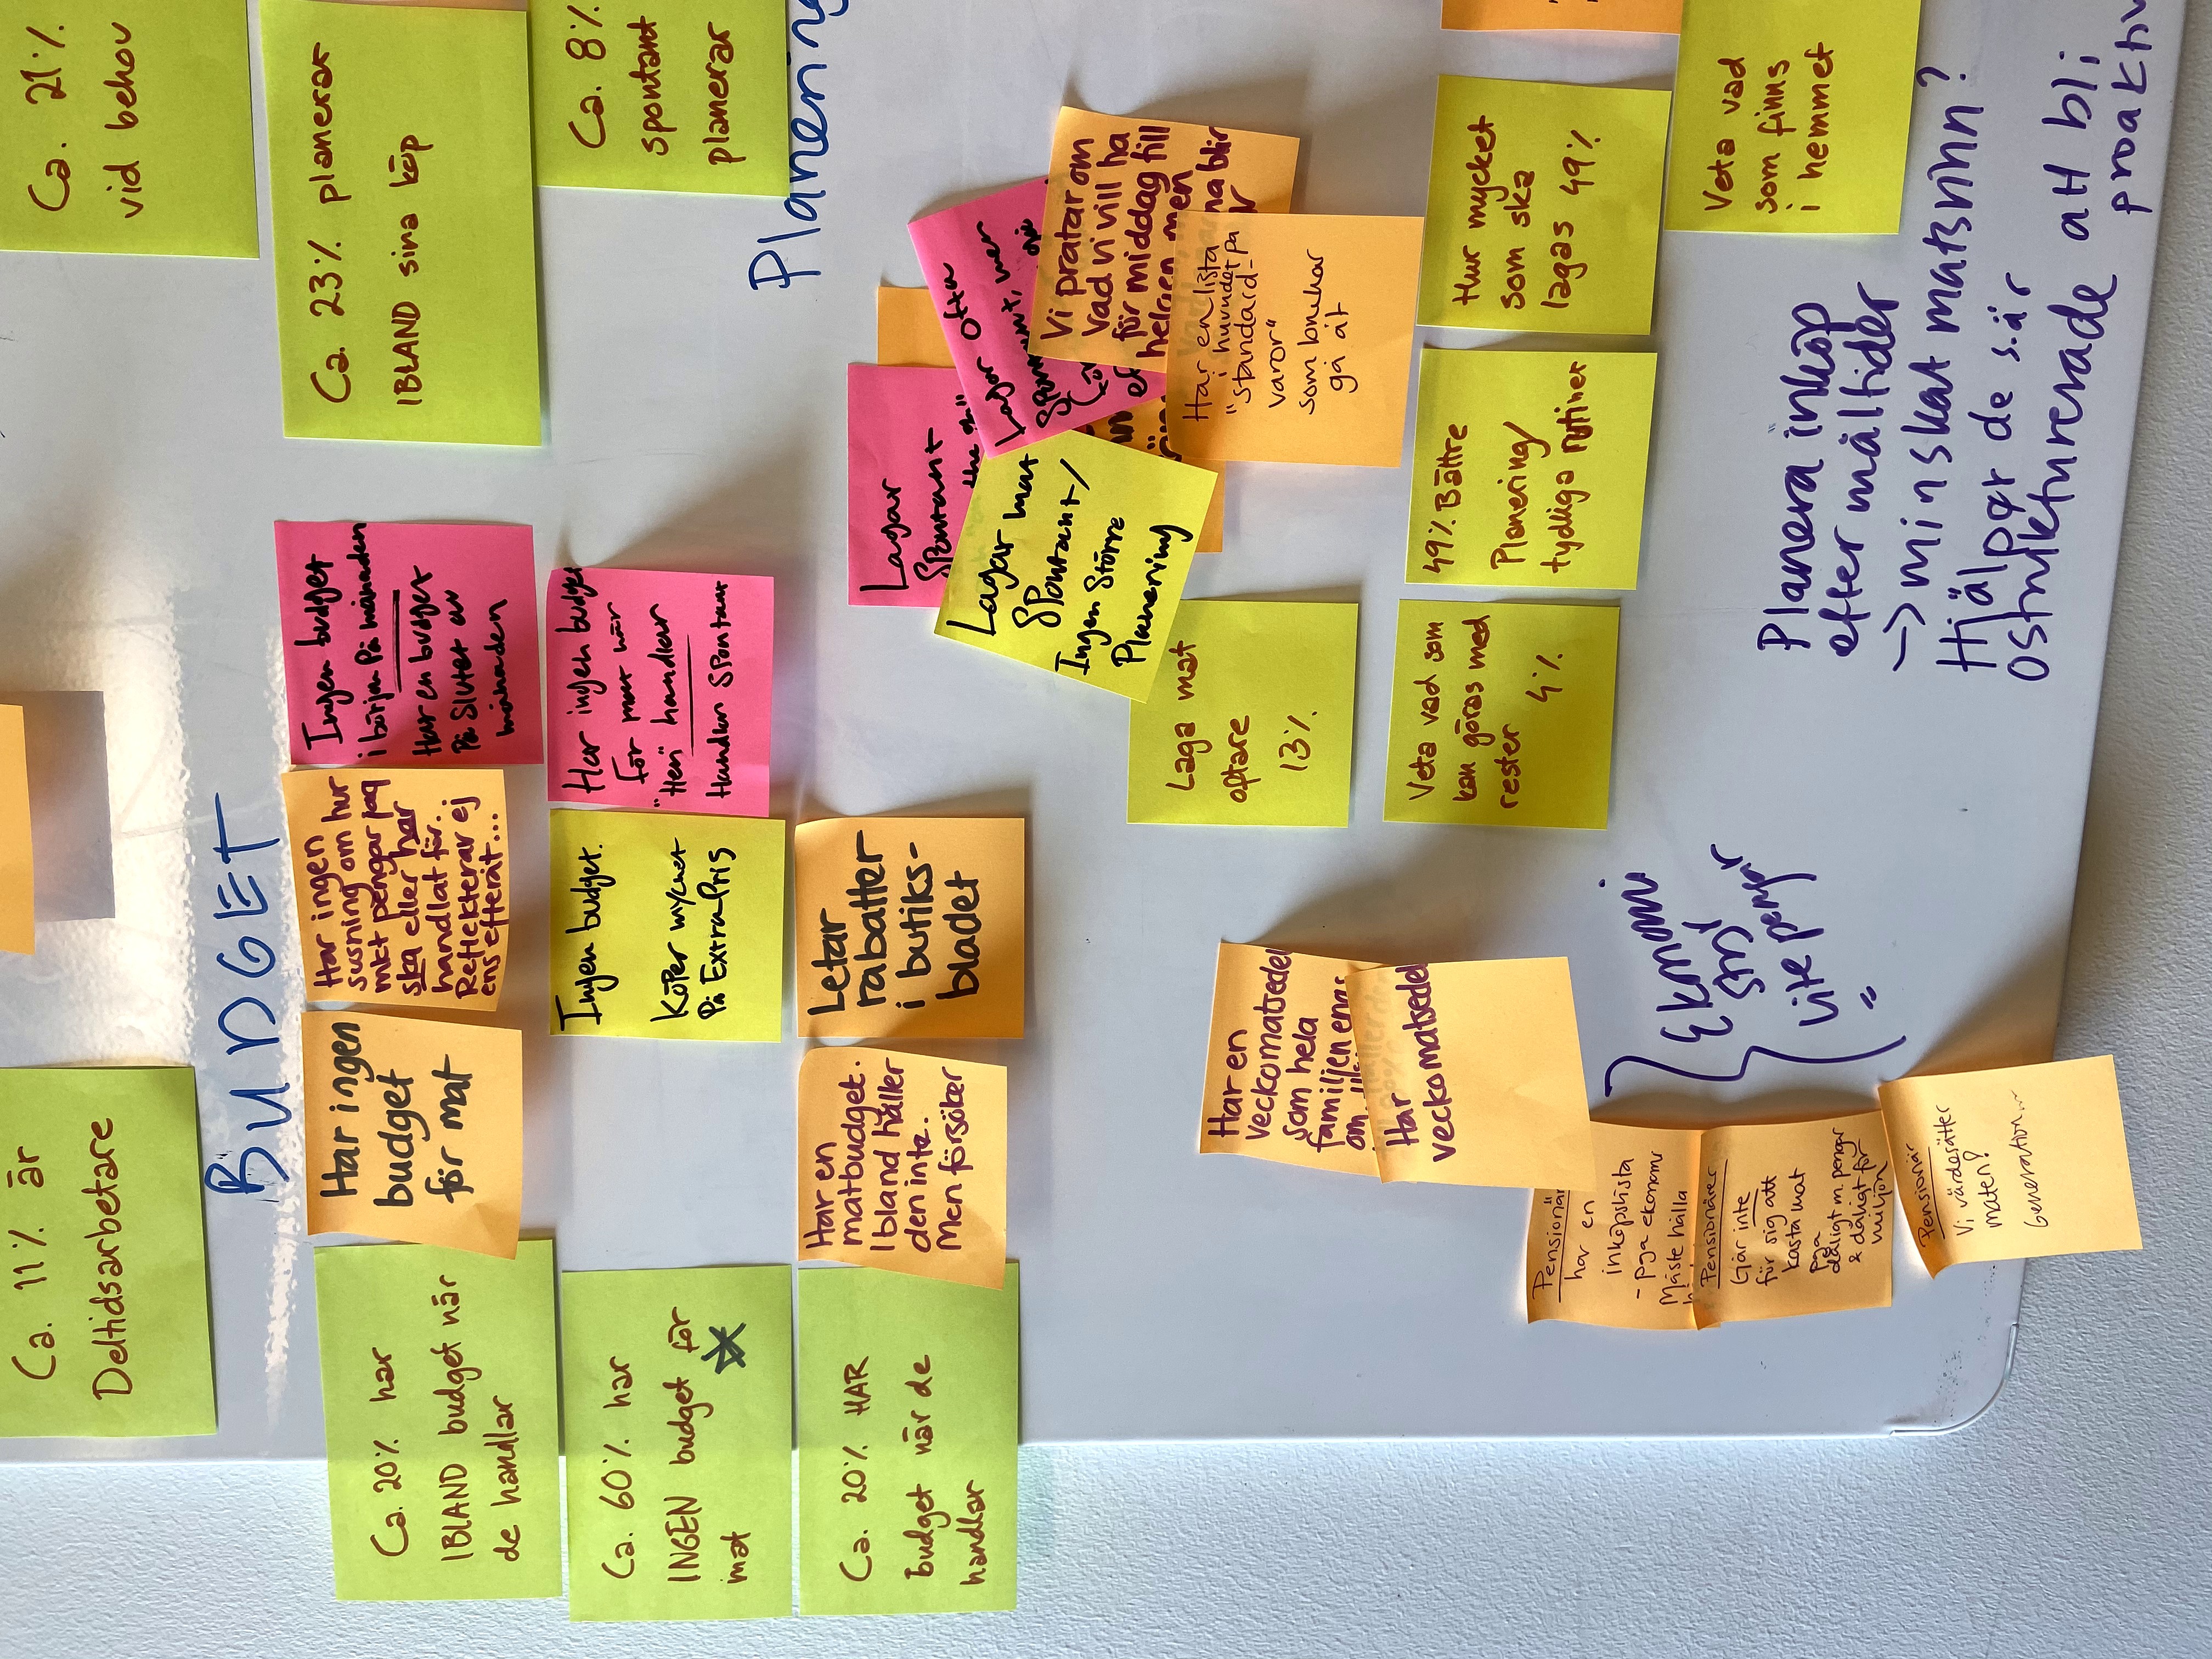 Ca. 11% är
Deltidsarbetare
Ca. 21%
vid behov
BUDGET
Ca. 20% har
IBLAND budget när
de handlar
Har ingen
budget
för mat
Har ingen
susning om hur
mkt pengar jag
ska eller har
handlat för.
Reflekterar ej
ens efteråt...
Ingen budget
i början På månaden
Har en budget
På Slutet av
månaden
Ca. 23% planerar
IBLAND sina köp
Ca. 60% har
INGEN budget för
mat
Ingen budget.
Köper mycket
På ExtraPris
Har ingen budget
för mat när
"Hen" handlar
Handlar Spontant
Ca. 8%
spontant
planerar
Planering
Ca. 20% HAR
budget när de
handlar
Har en
matbudget.
Ibland håller
den inte.
Men försöker
Letar
rabatter
i butiks-
bladet
Lagar
Spontant
Lagar mat
Spontant/
Ingen Större
Planering
Lagar ofta
Spontant, men
Vi pratar om
vad vi vill ha
för middag till
helgen, men
blir
Har en lista
i huvudet på
"standard-
varor"
som brukar
gå åt
Laga mat
oftare
13%
Har en
veckomatsedel
som hela
familjen enas
om.
Har
veckomatsedel
Veta vad som
kan göras med
rester
4%
49% Bättre
Planering/
tydliga rutiner
Hur mycket
som ska
lagas 49%
Pensionär
har en
inköpslista
- pga ekonomi
Måste hålla
Pensionärer
Går inte
för sig att
kasta mat
pga
dåligt m. pengar
& dåligt för
miljön
Ekonomi
styr
lite pengar
=
Veta vad
som finns
i hemmet
Pensionär
Vi värdesätter
maten!
Generation...
Planera inköp
efter måltider
-> minskat matsvinn?
Hjälper de s.är
ostrukturerade att bli
proaktiv